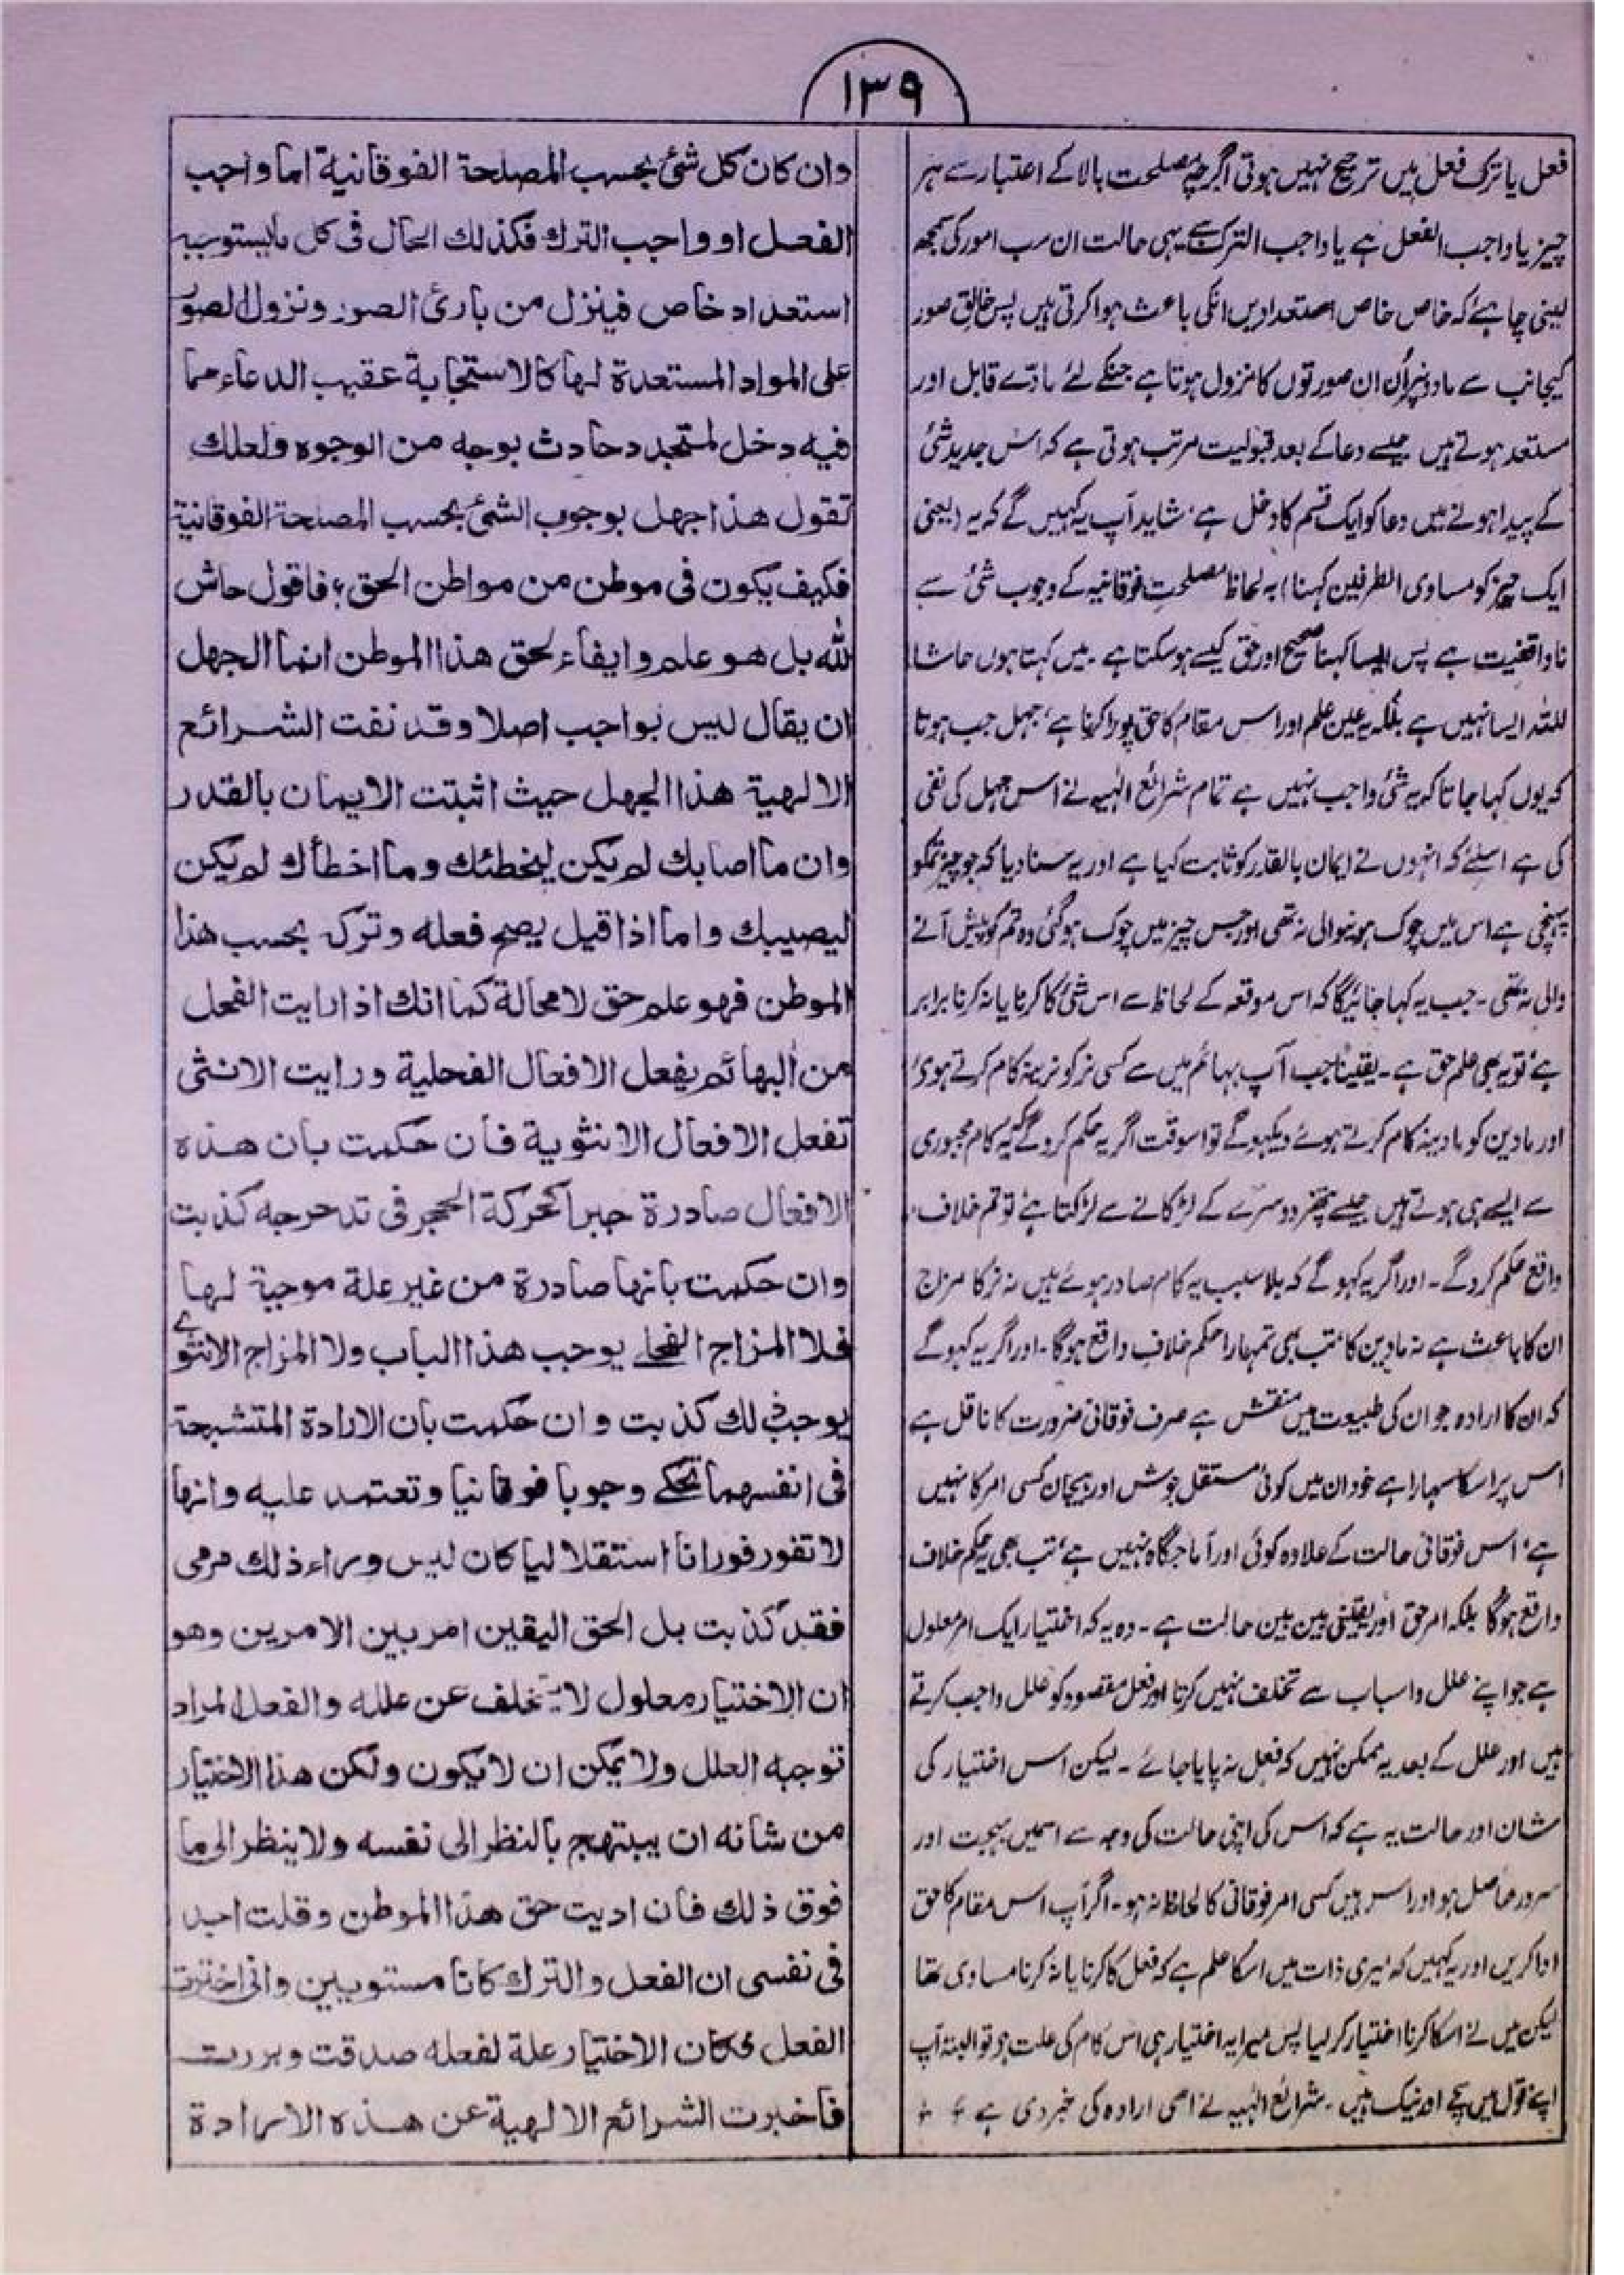 ۱۳۹
فعل یا ترک فعل میں ترجیح نہیں ہوتی اگرچہ مصلحت بالا کے اعتبار سے ہر
چیز یا واجب الفعل ہے یا واجب الترک ہے یہی حالت ان سب امور کی سمجھ
لینی چاہئے کہ خاص خاص استعدادیں انکی باعث ہوا کرتی ہیں پس خالق صور
کیجانب سے مادونپر اُن ان صورتوں کا نزول ہوتا ہے جنکے لئے مادے قابل اور
مستعد ہوتے ہیں جیسے دعا کے بعد قبولیت مرتب ہوتی ہے کہ اس جدید شئ
کے پیدا ہونے میں دعا کو ایک قسم کا دخل ہے، شاید آپ یہ کہیں گے کہ یہ (یعنی
ایک چیز کو مساوی الطرفین کہنا) بہ لحاظ مصلحت فوقانیہ کے وجوب شئ سے
ناواقفیت ہے پس ایسا کہنا صحیح اور حق کیسے ہو سکتا ہے۔ میں کہتا ہوں حاشا
للہ ایسا نہیں ہے بلکہ یہ عین علم اور اس مقام کا حق پورا کرنا ہے، جہل جب ہوتا
کہ یوں کہا جاتا کہ یہ شئ واجب نہیں ہے تمام شرائع الہیہ نے اس جہل کی نفی
کی ہے اسلئے کہ انہوں نے ایمان بالقدر کو ثابت کیا ہے اور یہ سنا دیا کہ جو چیز تمکو
پہنچی ہے اس میں چوک ہونیوالی نہ تھی اور جس چیز میں چوک ہوگئی وہ تم کو پیش آنے
والی نہ تھی۔ جب یہ کہا جائیگا کہ اس موقعہ کے لحاظ سے اس شئ کا کرنا یا نہ کرنا برابر
ہے تو یہ بھی علم حق ہے۔ یقیناً جب آپ بہائم میں سے کسی نر کو نرینہ کام کرتے ہوئے
اور مادین کو مادینہ کام کرتے ہوئے دیکھو گے تو اسوقت اگر یہ حکم کرو گے کہ یہ کام مجبوری
سے ایسے ہی ہوتے ہیں جیسے پتھر دوسرے کے لڑکانے سے لڑکتا ہے تو تم خلاف
واقع حکم کرو گے۔ اور اگر یہ کہو گے کہ بلا سبب یہ کام صادر ہوئے ہیں نہ نر کا مزاج
ان کا باعث ہے نہ مادین کا تب بھی تمہارا حکم خلاف واقع ہوگا۔ اور اگر یہ کہو گے
کہ ان کا ارادہ جو ان کی طبیعت میں منقش ہے صرف فوقانی ضرورت کا ناقل ہے
اس پر اسکا سہارا ہے خود ان میں کوئی مستقل جوش اور ہیجان کسی امر کا نہیں
ہے، اس فوقانی حالت کے علاوہ کوئی اور آماجگاہ نہیں ہے، تب بھی یہ حکم خلاف
واقع ہوگا بلکہ امر حق اور یقینی بین بین حالت ہے۔ وہ یہ کہ اختیار ایک امر معلول
ہے جو اپنے علل و اسباب سے تخلف نہیں کرتا اور فعل مقصود کو علل واجب کرتے
ہیں اور علل کے بعد یہ ممکن نہیں کہ فعل نہ پایا جائے۔ لیکن اس اختیار کی
شان اور حالت یہ ہے کہ اس کی اپنی حالت کی وجہ سے اسمیں بہجت اور
سرور حاصل ہو اور اس میں کسی امر فوقانی کا لحاظ نہ ہو۔ اگر آپ اس مقام کا حق
ادا کریں اور یہ کہیں کہ میری ذات میں اسکا علم ہے کہ فعل کا کرنا یا نہ کرنا مساوی تھا
لیکن میں نے اسکا کرنا اختیار کر لیا پس میرا یہ اختیار ہی اس کام کی علت ہو تو البتہ آپ
اپنے قول میں سچے اور نیک ہیں۔ شرائع الہیہ نے اسی ارادہ کی خبر دی ہے
وان کان کل شئ بحسب المصلحة الفوقانیة اما واجب
الفعل او واجب الترك فکذلك الحال فی کل ما یستوجبه
استعداد خاص فینزل من بارئ الصور ونزول الصور
علی المواد المستعدة لها کالاستجابة عقیب الدعاء مما
فیه دخل لمتجدد حادث بوجه من الوجوه ولعلك
تقول هذا جهل بوجوب الشئ بحسب المصلحة الفوقانیة
فکیف یکون فی موطن من مواطن الحق، فاقول حاش
لله بل هو علم وایفاء لحق هذا الموطن انما الجهل
ان یقال لیس بواجب اصلا وقد نفت الشرائع
الالهیة هذا الجهل حیث اثبتت الایمان بالقدر
وان ما اصابك لم یکن لیخطئك وما اخطأك لم یکن
لیصیبك واما اذا قیل یصح فعله وترکه بحسب هذا
الموطن فهو علم حق لا محالة کما انك اذا رایت الفحل
من البهائم یفعل الافعال الفحلیة ورایت الانثی
تفعل الافعال الانثویة فان حکمت بان هذه
الافعال صادرة جبرا کحرکة الحجر فی تدحرجه کذبت
وان حکمت بانها صادرة من غیر علة موجبة لها
فلا المزاج الفحلے یوجب هذا الباب ولا المزاج الانثوے
یوجب ذلك کذبت وان حکمت بان الارادة المتشبحة
فی انفسهما تحکے وجوبا فوقانیا وتعتمد علیه وانها
لا تفور فورانا استقلالیا کان لیس وراء ذلك مرمی
فقد کذبت بل الحق الیقین امر بین الامرین وهو
ان الاختیار معلول لا یتخلف عن علله والفعل المراد
توجبه العلل ولا یمکن ان لا یکون ولکن هذا الاختیار
من شانه ان یبتهج بالنظر الی نفسه ولا ینظر الی ما
فوق ذلك فان ادیت حق هذا الموطن وقلت اجد
فی نفسی ان الفعل والترك کانا مستویین وانی اخترت
الفعل فکان الاختیار علة لفعله صدقت وبررت
فاخبرت الشرائع الالهیة عن هذه الارادة